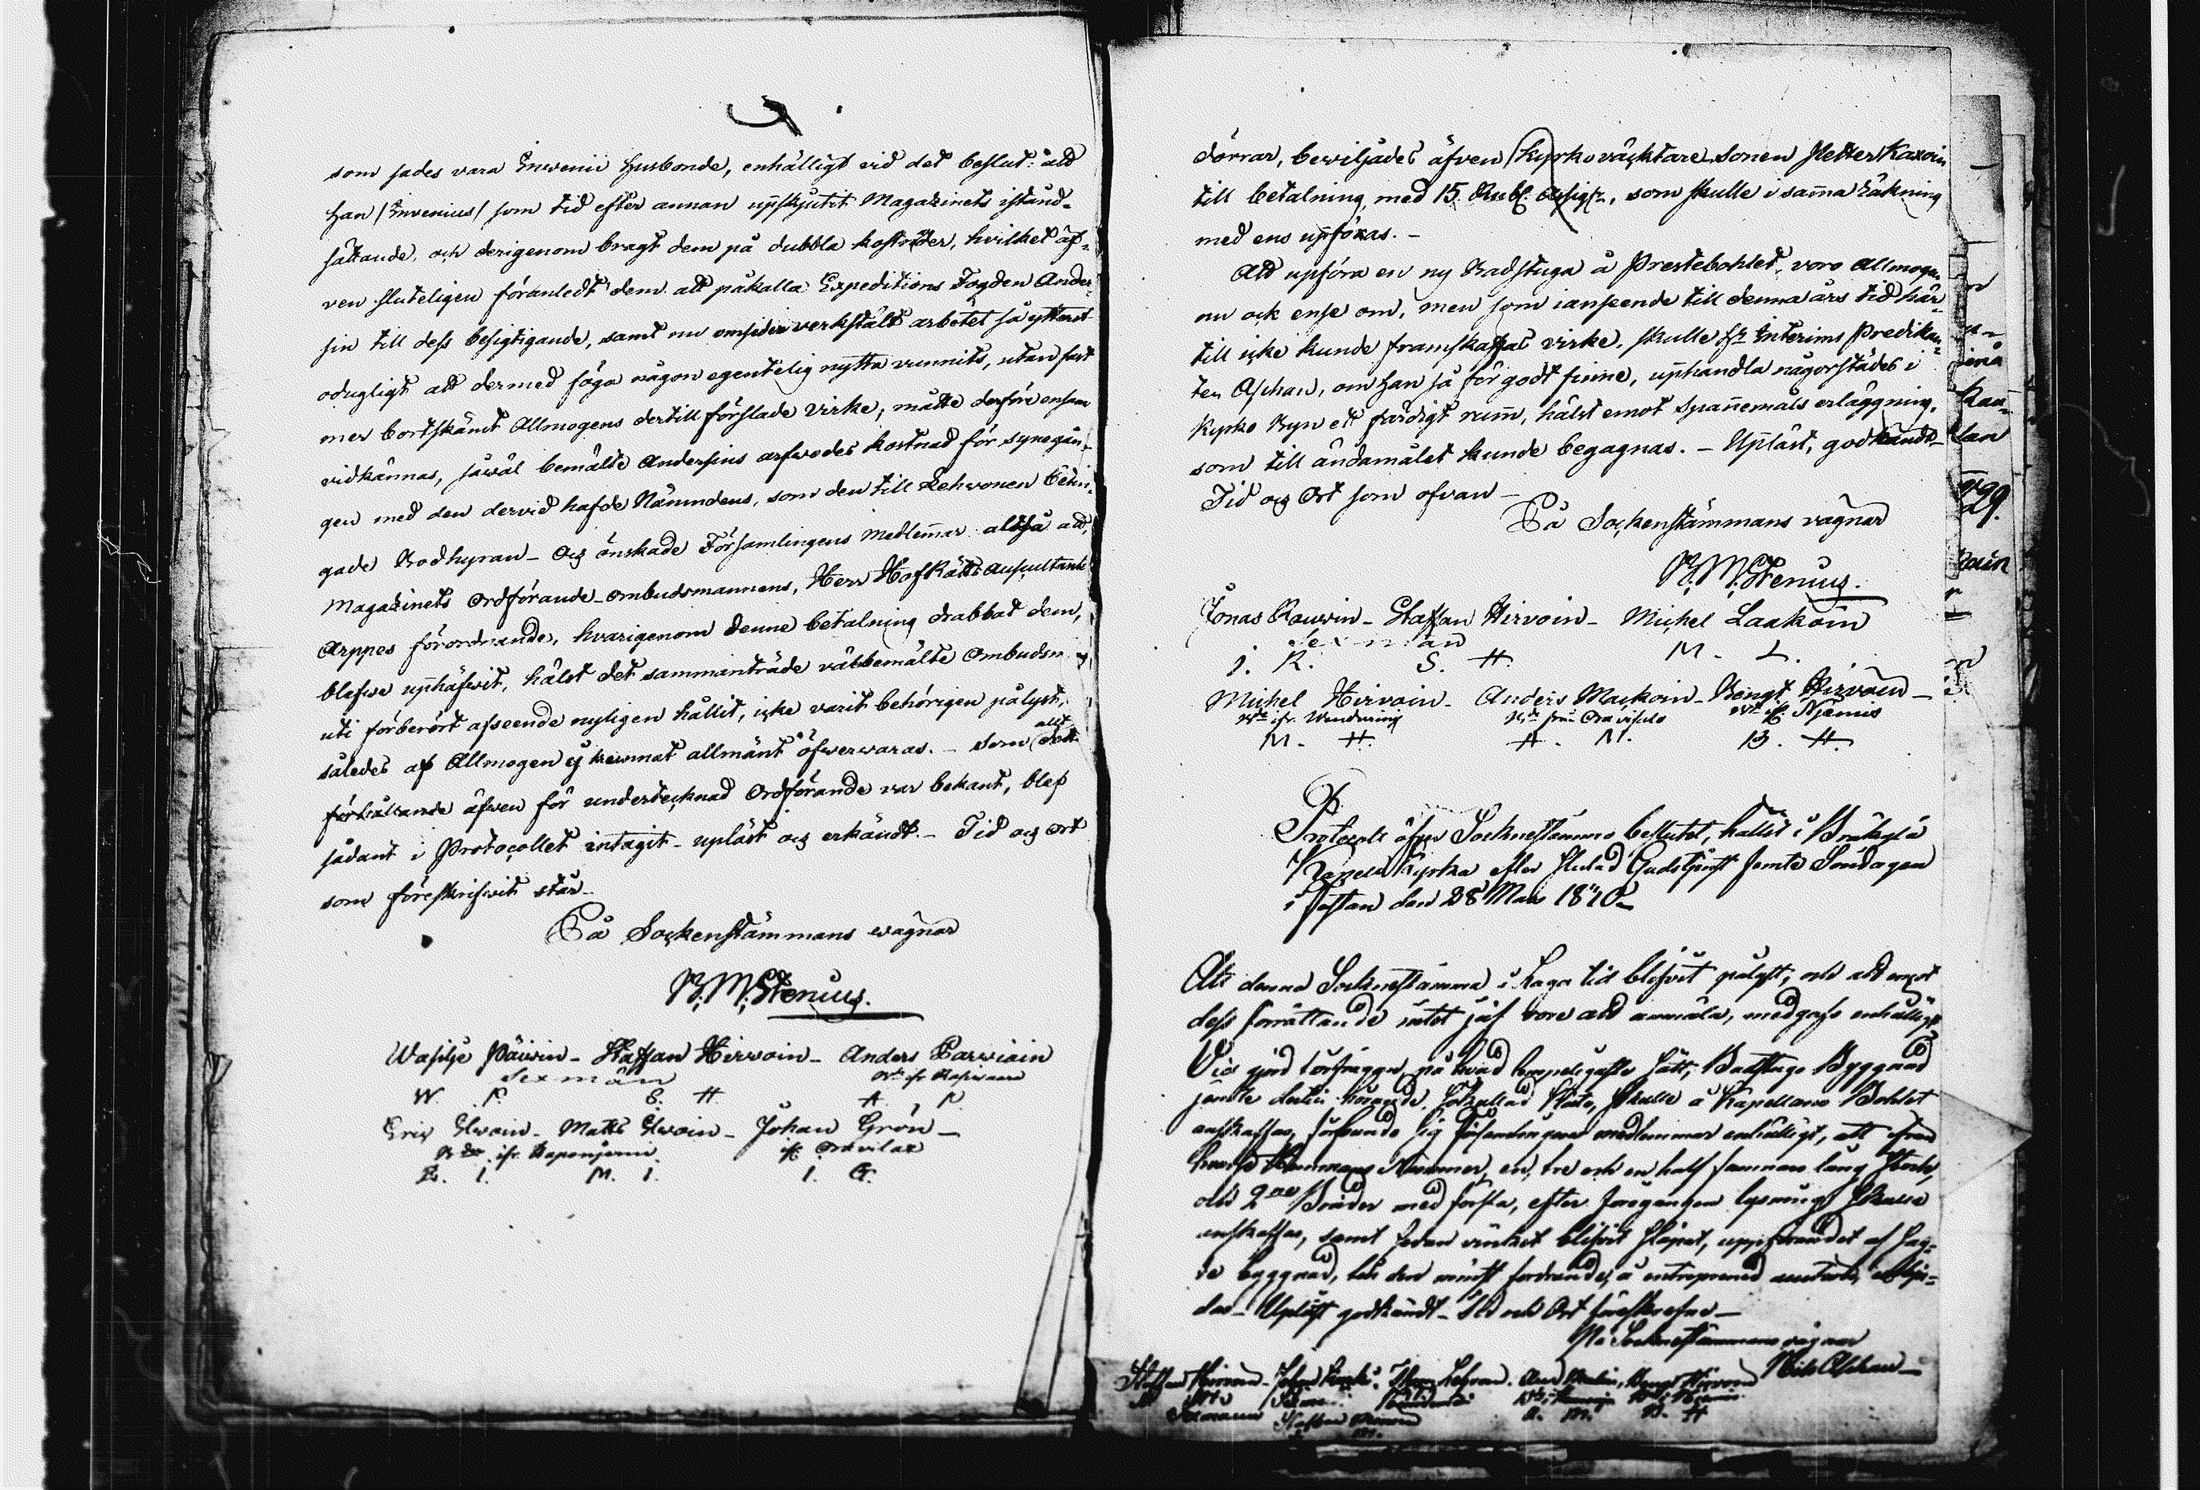 som sades vara Inwenii husbonde, enhälligt vid det beslut: att
han /Invenius/ som tid efter annan uppskjutit Magazinets istånd-
sättande, och derigenom bragt dem på dubbla kostnader, hvilket äf-
ven sluteligen föranledt dem att påkalla Expeditions Fogden Ander-
sin till dess besigtigande, samt nu omsider verkstält arbetet så ytterst
odugligt att dermed föga någon egentelig nytta vunnits, utan fast
mer bortskämt Allmogens dertill förslade virke, måtte derföre ensam
vidkännas, såwäl bemälte Andersins arfwodes kostnad för synegån-
gen med den dervid hafde Nämndens, som den till Lehwonen betin-
gade Bodhyran - Och önskade Församlingens medlemmar altså att,
Magazinets Ordförande-ombudsmannens, Herr HofRätts Auscultanten
Arppes förordnande, hvarigenom denne betalning drabbat dem,
blefwe upphäfwit, hälst det sammanträde välbemälte Ombudsm
uti förberört afseende nyligen hållit, icke varit behörigen pålyst,
således af Allmogen ej kunnat allmänt öfwerwaras. - Som
allt
förhållande äfwen för undertecknad Ordförande var bekant, blef
sådant i Protocollet intagit - upläst och erkändt. - Tid och ort
som föreskrifwit står.
På Sockenstämmans wägnar
B. M. Stenius.
Wasilje Päiwin - Staffan Hirwoin - Anders Parwiain
Sexmän
W. P. S. H. A. P.
Eric Ilwoin - Matts Ilwoin - Johan Grön -
E. I. M. I. I. G.
dörrar, bewiljades äfven /kyrkowäcktare sonen Petter Kaxoin
till betalning, med 15. Rubl. Assign., som skulle i samma Räkning
med ens uppföras. -
Att upföra en ny Badstuga å Prestebohlet, voro Allmogen
nu ock ense om, men som i anseende till denna års tid här-
till icke kunde framskaffas virke, skulle Hr Interims Predikan-
ten Aschan, om han så för godt finne, upphandla någorstädes i
Kyrko Byn ett färdigt rum, hälst emot Spannemåls erläggning,
som till ändamålet kunde begagnas. - Upläst, godkändt -
Tid och Ort som ofvan -
På Sockenstämmans vägnar
B. M. Stenius.
Jonas Rauwin - Staffan Hirvoin - Michel Laakoin
Sexmän
J. R. S. H. M. L.
Michel Hirvoin - Anders Mackoin - Bengt Hirvoin -
M. H. A. M. B. H.
Protocoll öfver Sockne stämmo beslutet, hållit i Bräkylä
Kapell Kyrka efter slutad Gudstjenst femte Söndagen
i Fastan den 28 Mars 18
Att denna Sockne stämma i Laga tid blifvit pålyst, och att emot
dess förrättande intet jäf vore att anmäla, medgafs enhälligt
Vid gjord förfrågan, på hvad sätt, Badstugo Byggnad
jämte dertill hörande skulle å Kapellans Bohlet
anskaffas, förbundo sig Församlingens medlemmar enhälligt, att ifrån
hvarje Nummer, en, tre och en half famnar lång Stock,
och 2ne Bräder med första, efter föregången lysning skulle
anskaffas, samt sedan virket blifvit släpat, uppförandet af sag-
de byggnad, åt den minst fordrande, å entreprenad
das - Upläst godkändt - Tid och Ort föreskrefne -
På Sockne stämmans vägnar
Nils Aschan -
Staffan Hirvoin
Sexmän